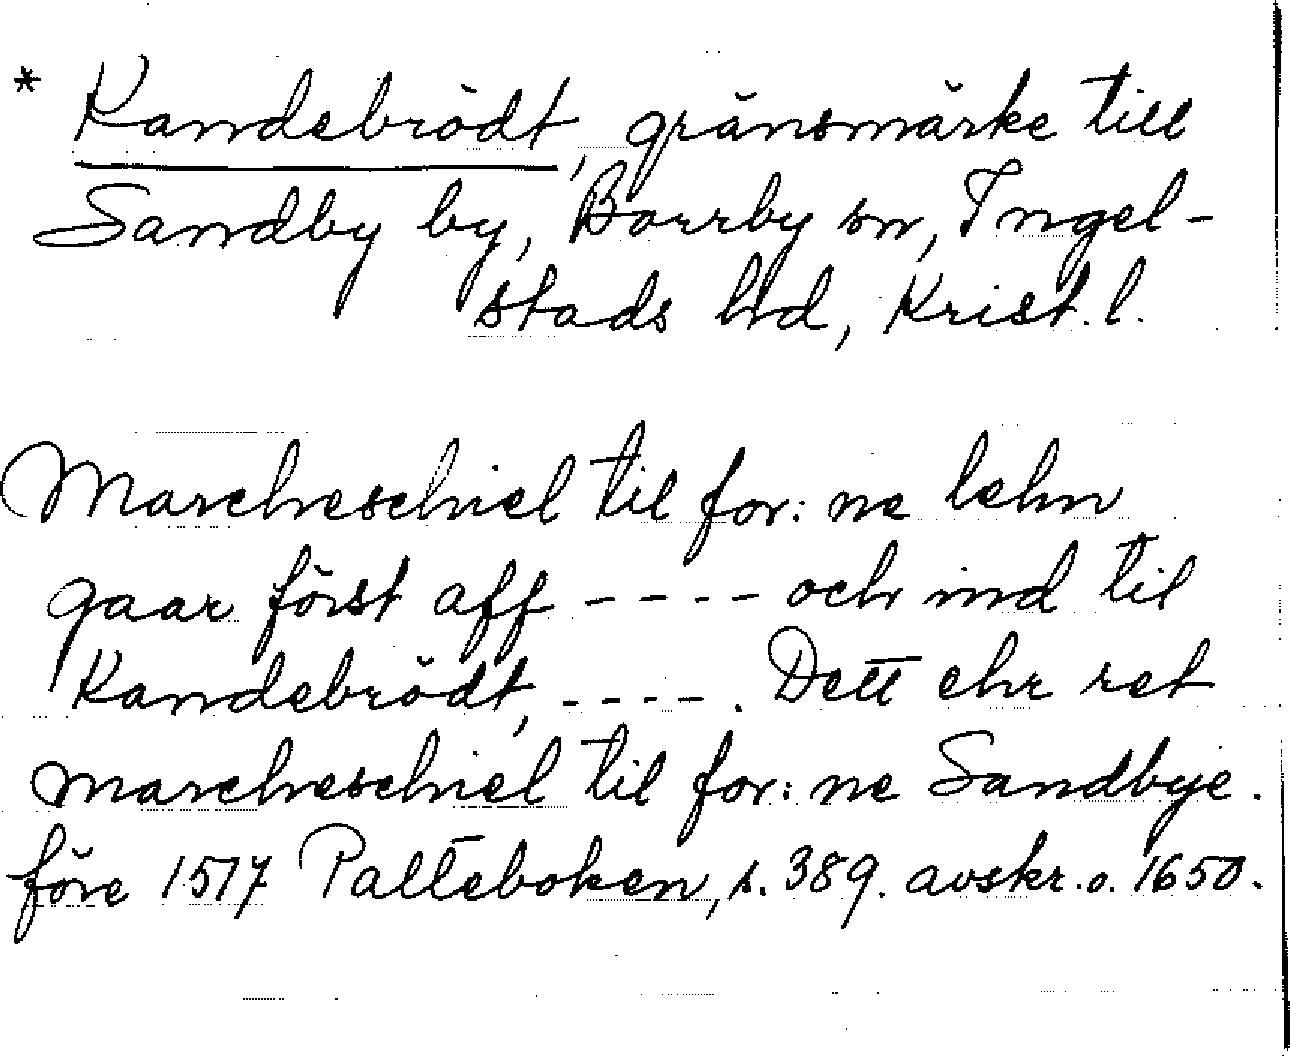 * Kandebrödt, gränsmärke till
Sandby by, Borrby sn, Ingel-
stads hd, Krist. l.
Marcheschiel til for: ne lehn
gaar först aff - - - - och ind til
Kandebrödt, - - - - . Dett ehr ret
marcheschiel til for: ne Sandbye.
före 1517 Palteboken, s. 389. avskr. o. 1650.